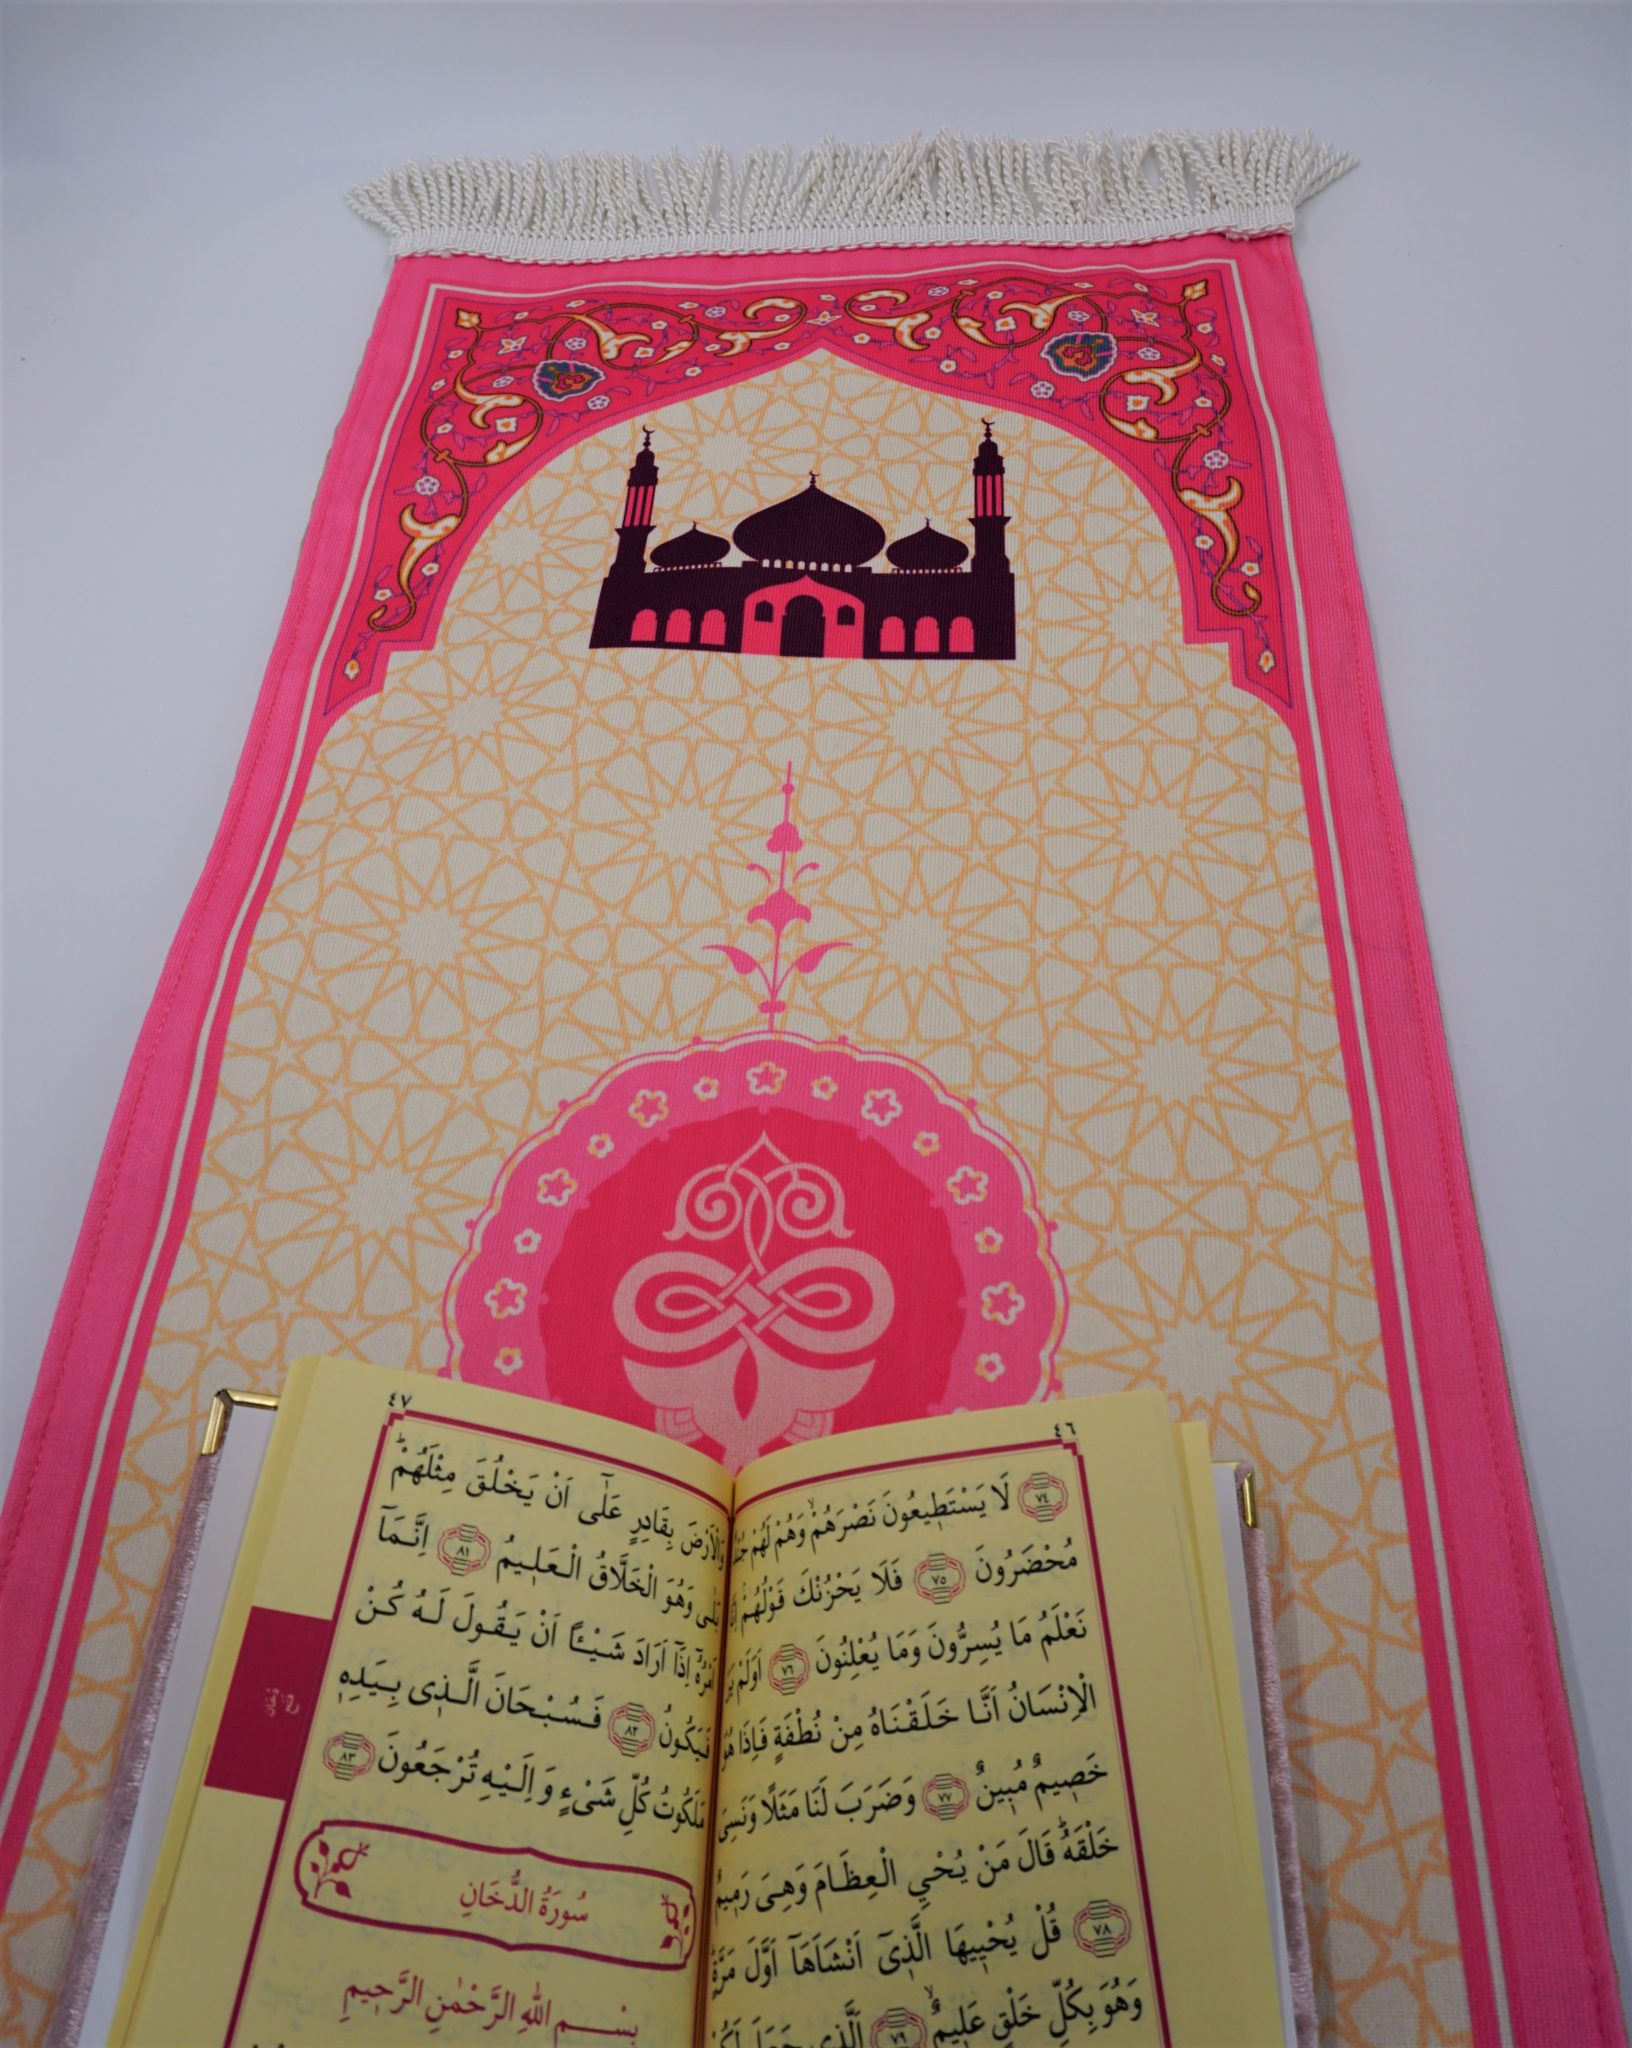 ٤٦
﴿٧٤﴾ لَا يَسْتَطِيعُونَ نَصْرَهُمْ وَهُمْ لَهُمْ
مُحْضَرُونَ ﴿٧٥﴾ فَلَا يَحْزُنْكَ قَوْلُهُمْ
نَعْلَمُ مَا يُسِرُّونَ وَمَا يُعْلِنُونَ ﴿٧٦﴾ اَوَلَمْ
الْاِنْسَانُ اَنَّا خَلَقْنَاهُ مِنْ نُطْفَةٍ فَاِذَا هُوَ
خَصِيمٌ مُبِينٌ ﴿٧٧﴾ وَضَرَبَ لَنَا مَثَلًا وَنَسِىَ
خَلْقَهُ قَالَ مَنْ يُحْيِ الْعِظَامَ وَهِىَ رَمِيمٌ
﴿٧٨﴾ قُلْ يُحْيِيهَا الَّذِىٓ اَنْشَاَهَٓا اَوَّلَ مَرَّةٍ
وَهُوَ بِكُلِّ خَلْقٍ عَلِيمٌ ﴿٧٩﴾ اَلَّذِى جَعَلَ
٤٧
وَالْاَرْضَ بِقَادِرٍ عَلٰٓى اَنْ يَخْلُقَ مِثْلَهُمْ
بَلٰى وَهُوَ الْخَلَّاقُ الْعَلِيمُ ﴿٨١﴾ اِنَّمَٓا
اَمْرُهُٓ اِذَٓا اَرَادَ شَيْـًٔا اَنْ يَقُولَ لَهُ كُنْ
فَيَكُونُ ﴿٨٢﴾ فَسُبْحَانَ الَّذِى بِيَدِهِ
مَلَكُوتُ كُلِّ شَىْءٍ وَاِلَيْهِ تُرْجَعُونَ ﴿٨٣﴾
سُورَةُ الدُّخَانِ
بِسْمِ اللهِ الرَّحْمٰنِ الرَّحِيمِ